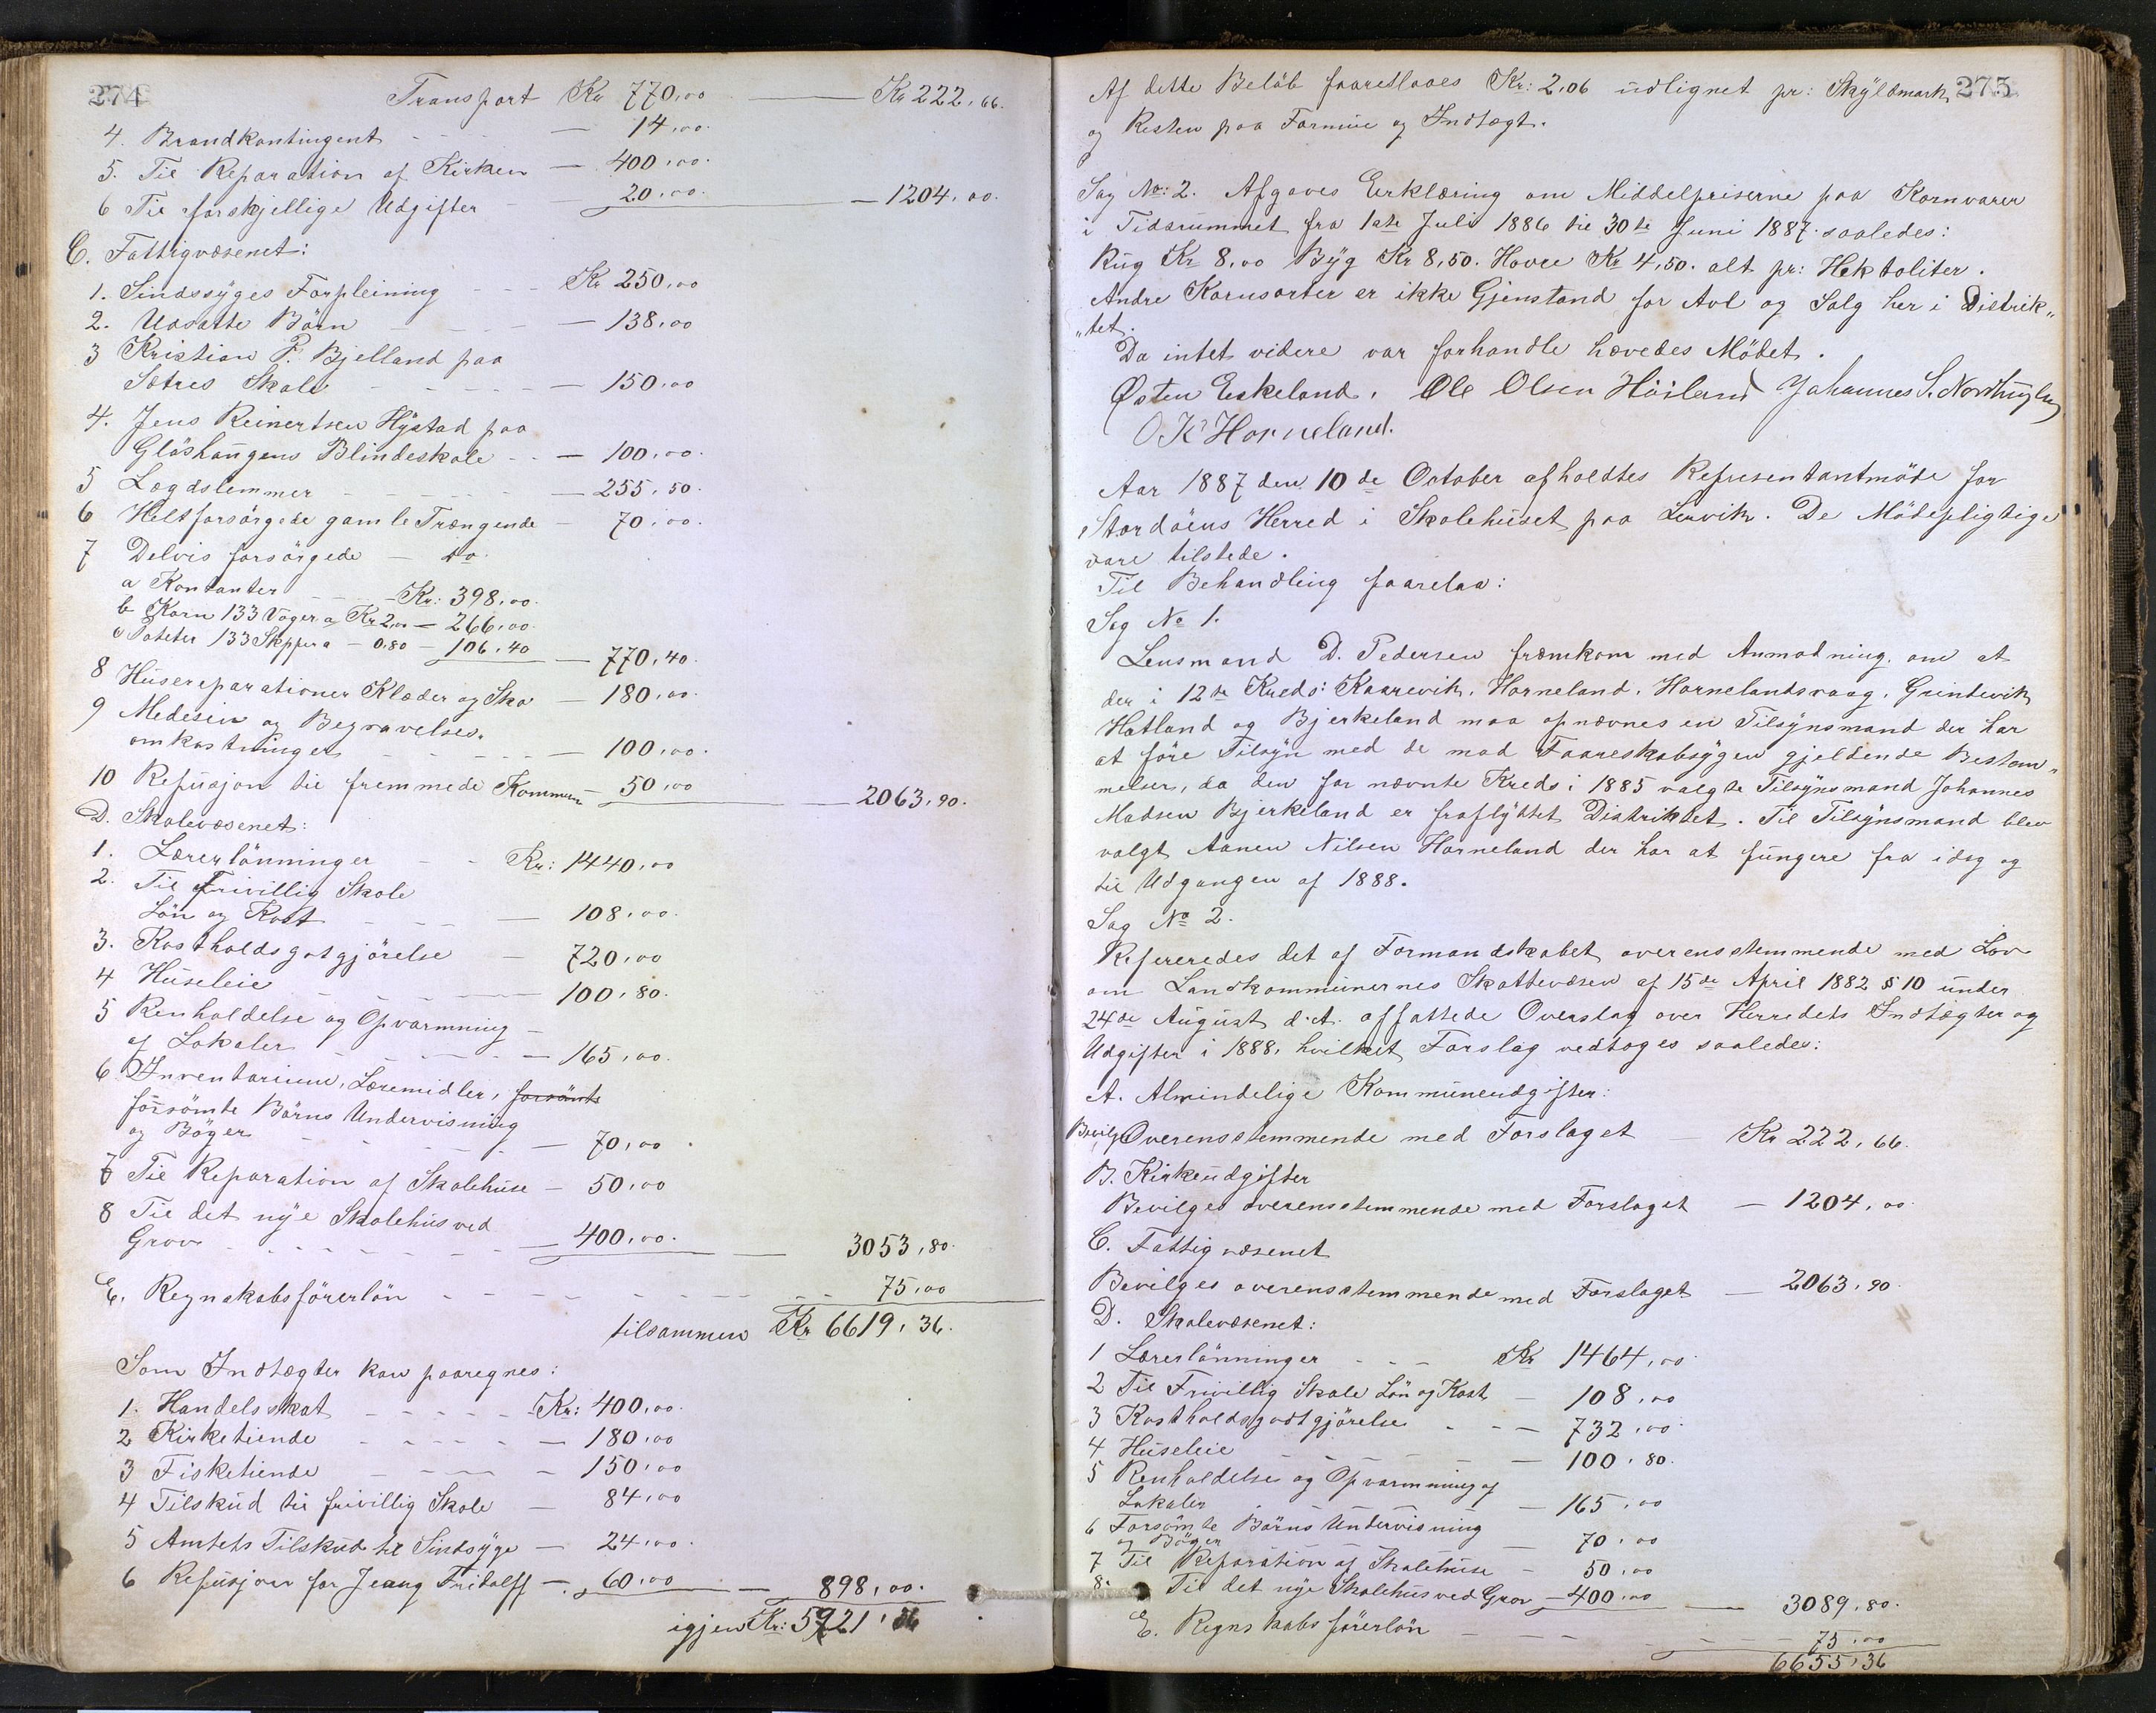 274
Transport Kr 770,00 — Kr 222,66.
4. Brandkontingent - - - — 14,00.
5. Til Reparation af Kirken — 400,00.
6 Til forskjellige Udgifter - 20,00. — 1204,00.
C. Fattigvæsenet:
1. Sindssyges Forpleining - - - Kr 250,00
2. Udsatte Börn - - - - — 138,00
3 Kristian P. Bjelland paa
Sætres Skole - - - - - — 150,00
4. Jens Reinertsen Hystad paa
Glöshaugens Blindeskole - - — 100,00.
5 Lægdslemmer - - - - - — 255,50.
6 Heltforsörgede gamle Trængende — 70,00.
7 Delvis forsörgede — do.
a Kontanter - - - Kr: 398,00.
b Korn 133 Voger a Kr 2,00 — 266,00.
c Poteter 133 Skpper a — 0,80 — 106,40 — 770,40.
8 Husereparationer Klæder og Sko — 180,00.
9 Medesin og Begravelses-
omkostninger - - - - - — 100,00.
10 Refusjon til fremmede Kommun — 50,00 — 2063,90.
D. Skolevæsenet:
1. Lærerlönninger - - Kr: 1440,00
2. Til Frivillig Skole
Lön og Kost - - - — 108,00.
3. Kostholdsgotgjörelse — 720,00
4 Huseleie - - - - — 100,80.
5 Renholdelse og Opvarmning —
af Lokaler - - - - - — 165,00.
6 Inventarium, Læremidler, forsömt
forsömte Börns Undervisning
og Böger - - - - — 70,00.
7 Til Reparation af Skolehuse — 50,00
8 Til det nye Skolehus ved
Grov - - - - - - — 400,00. — 3053,80.
E. Regnskabsförerlön - - - - - - - - - 75,00
tilsammen Kr 6619,36.
Som Indtægter kan paaregnes:
1. Handelsskat - - - - - Kr: 400,00.
2 Kirketiende - - - - — 180,00
3 Fisketiende - - - - — 150,00
4 Tilskud til frivillig Skole — 84,00
5 Amtets Tilskud til Sindsyge — 24,00.
6 Refusjon for Jeang Fridolff — 60,00 — 898,00.
igjen Kr: 5721,36
275
Af dette Belöb foareslaaes Kr: 2,06 udlignet pr: Skyldmark
og Resten paa Formue og Indtægt.
Sag No: 2. Afgaves Erklæring om Middelpriserne paa Kornvarer
i Tidsrummet fra 1ste Juli 1886 til 30te Juni 1887 saaledes:
Rug Kr 8,00 Byg Kr 8,50. Havre Kr 4,50. alt pr: Hektoliter.
Andre Kornsorter er ikke Gjenstand for Avl og Salg her i Distrik„
„tet.
Da intet videre var forhandle hævedes Mödet.
Østen Eskeland. Ole Olsen Höiland Johannes S. Nordhuglen
O K Horneland.
Aar 1887 den 10de October afholdtes Representantmöde for
Stordöens Herred i Skolehuset paa Lervik. De Mödepligtige
vare tilstede.
Til Behandling foarelaa:
Sag No 1.
Lensmand D. Pedersen fræmkom med Anmodning om at
der i 12te Kreds: Kaarevik, Horneland, Hornelandsvaag, Grindevik
Hatland og Bjerkeland maa opnævnes en Tilsynsmand der har
at före Tilsyn med de mod Faareskabsygen gjeldende Bestem„
melser, da den for nævnte Kreds i 1885 valgte Tilsynsmand Johannes
Madsen Bjerkeland er fraflyttet Distriktet. Til Tilsynsmand blev
valgt Aanen Nilsen Horneland der har at fungere fra idag og
til Udgangen af 1888.
Sag No 2.
Refereredes det af Formandskabet overensstemmende med Lov
om Landkommunernes Skattevæsen af 15de April 1882 § 10 under
24de August d.A. affattede Overslag over Herredets Indtægter og
Udgifter i 1888, hvilket Forslag vedtoges saaledes:
A. Almindelige Kommuneudgifter:
Bevilg. Overensstemmende med Forslaget — Kr 222,66.
B. Kirkeudgifter
Bevilges overensstemmende med Forslaget — 1204,00.
C. Fattigvæsenet
Bevilges overensstemmende med Forslaget — 2063,90.
D. Skolevæsenet:
1 Lærerlönninger - - - Kr 1464,00.
2 Til Frivillig Skole Lön og Kost — 108,00
3 Kostholdsgodtgjörelse - - — 732,00.
4 Huseleie - - - - - — 100,80.
5 Renholdelse og Opvarmning af
Lokaler - - - - - — 165,00
6 Forsömte Börns Undervisning
og Böger - - - - — 70,00
7 Til Reparation af Skolehuse — 50,00
8. Til det nye Skolehus ved Grov — 400,00 — 3089,80.
E. Regnskabsförerlön - - - - - - - 75,00
6655,36